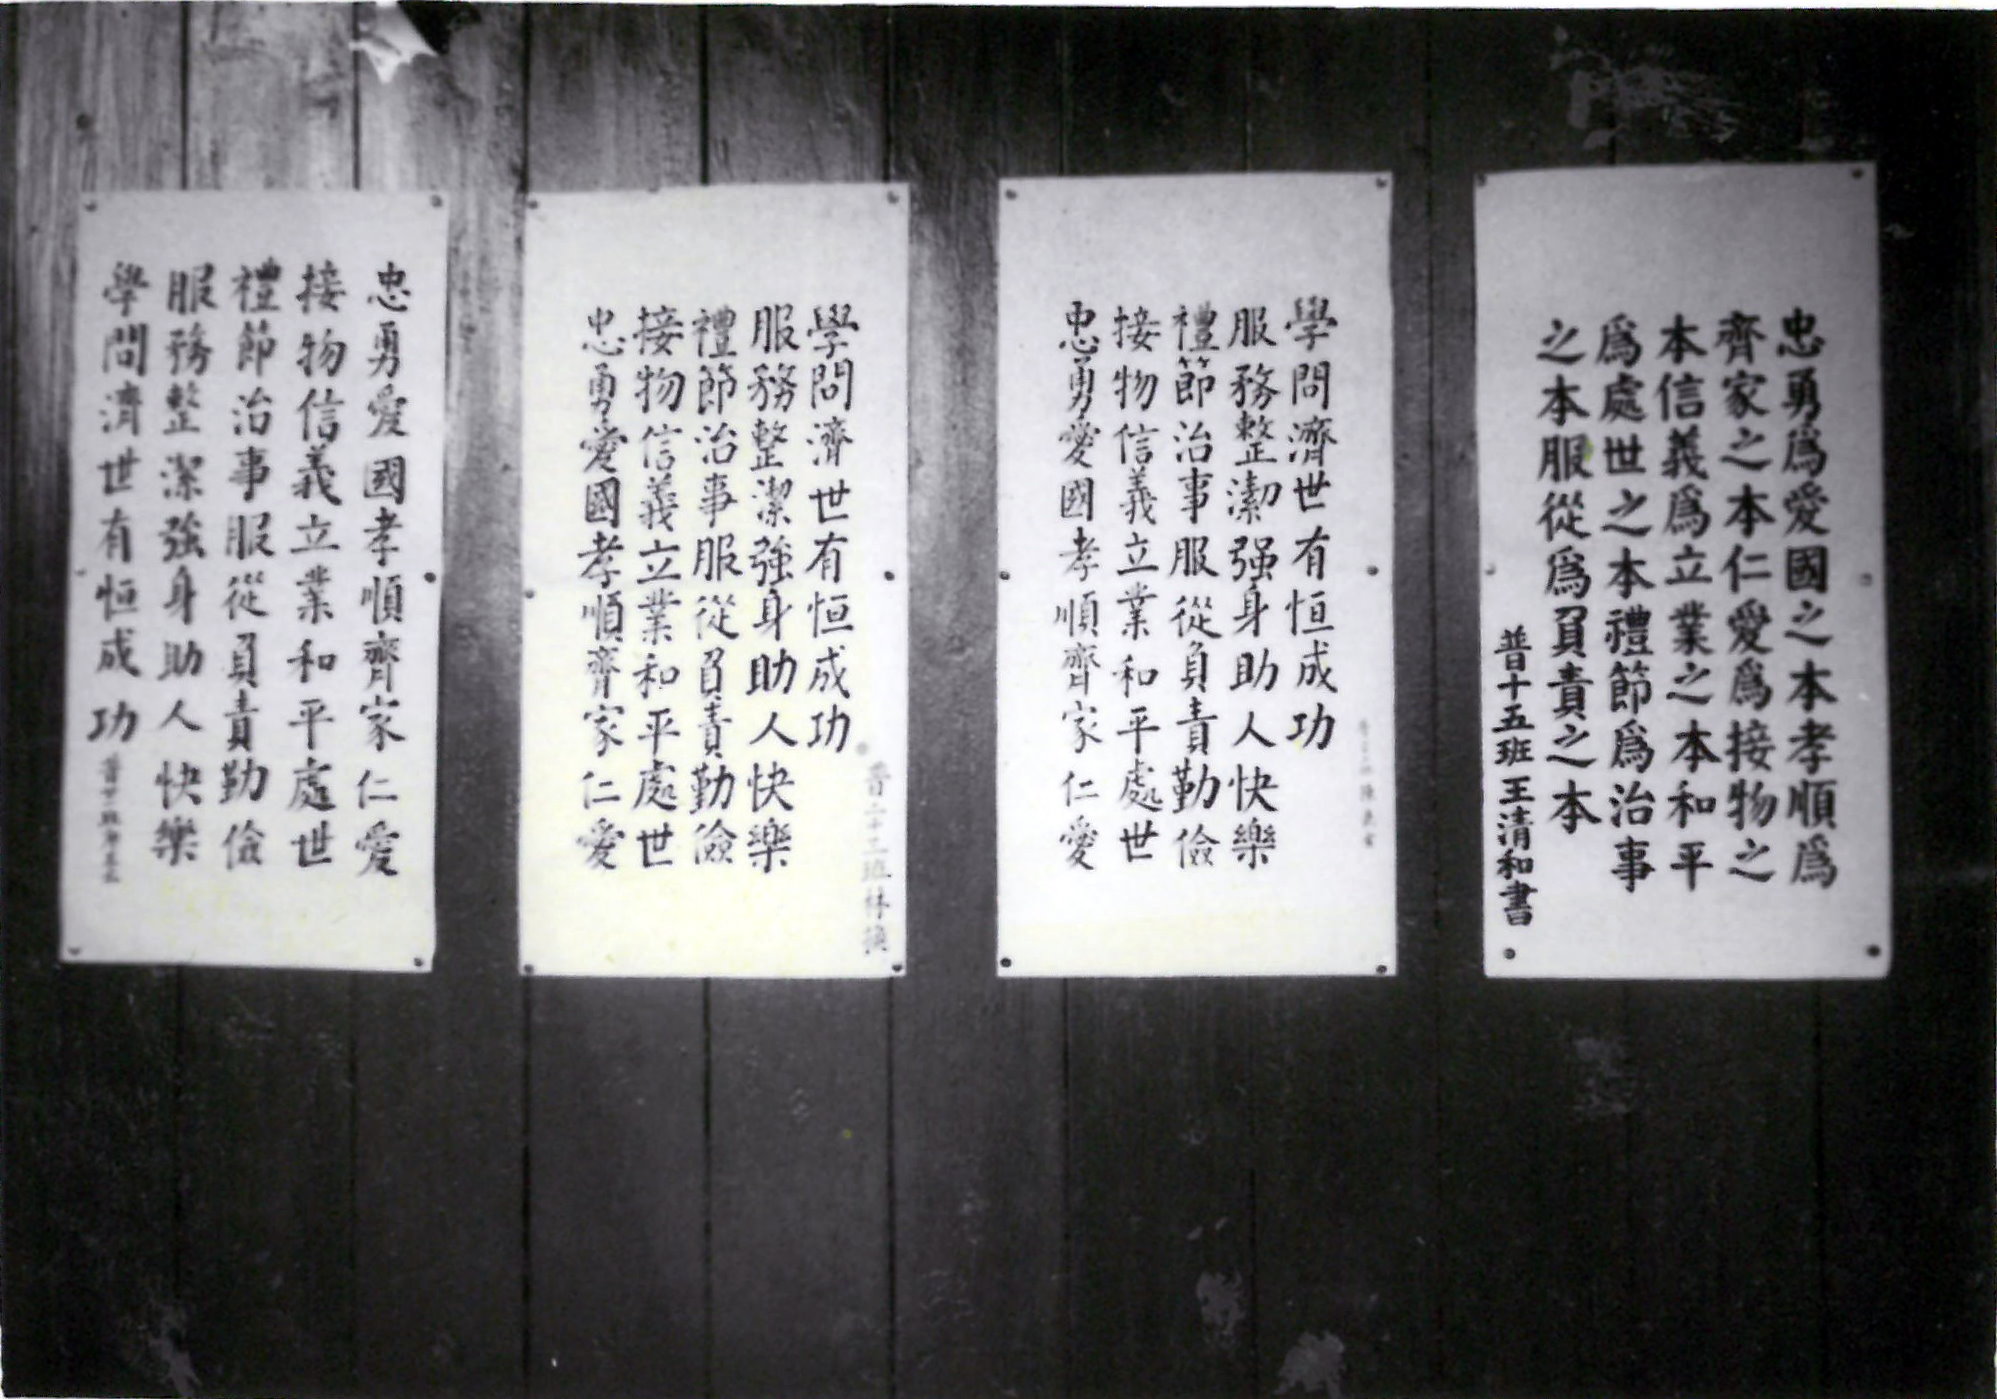 忠勇爲愛國之本孝順爲
齊家之本仁愛爲接物之
本信義爲立業之本和平
爲處世之本禮節爲治事
之本服從爲負責之本
普十五班王清和書
忠勇愛國孝順齊家仁愛
接物信義立業和平處世
禮節治事服從負責勤儉
服務整潔强身助人快樂
學問濟世有恒成功
忠勇愛國孝順齊家仁愛
接物信義立業和平處世
禮節治事服從負責勤儉
服務整潔強身助人快樂
學問濟世有恒成功
普二十三班林
忠勇愛國孝順齊家仁愛
接物信義立業和平處世
禮節治事服從負責勤儉
服務整潔強身助人快樂
學問濟世有恒成功